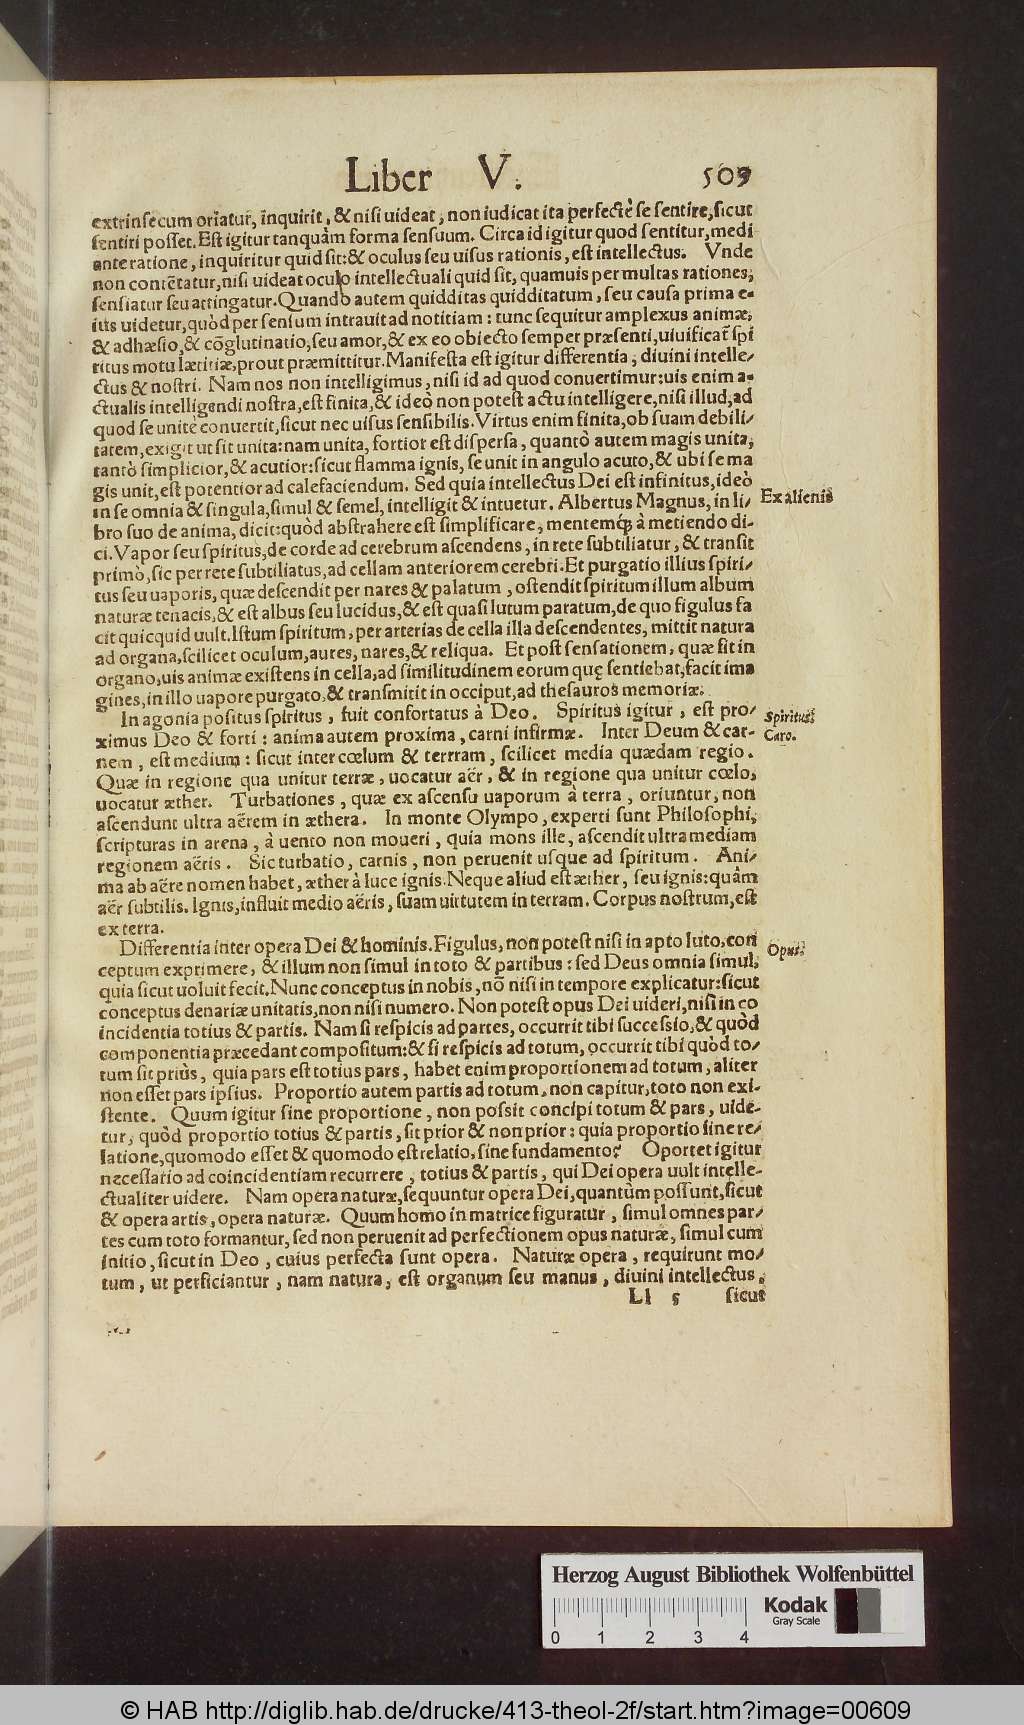 Liber V. 509
extrinsecum oriatur, inquirit, & nisi uideat, non iudicat ita perfectè se sentire, sicut
sentiri posset. Est igitur tanquàm forma sensuum. Circa id igitur quod sentitur, medi
ante ratione, inquiritur quid sit: & oculus seu uisus rationis, est intellectus. Vnde
non contẽtatur, nisi uideat oculo intellectuali quid sit, quamuis per multas rationes,
sentiatur seu attingatur. Quando autem quidditas quidditatum, seu causa prima e-
ius uidetur, quòd per sensum intrauit ad notitiam: tunc sequitur amplexus animæ,
& adhæsio, & cõglutinatio, seu amor, & ex eo obiecto semper præsenti, uiuificat̃ spi
ritus motu lætitiæ, prout præmittitur. Manifesta est igitur differentia, diuini intelle/
ctus & nostri. Nam nos non intelligimus, nisi id ad quod conuertimur: uis enim a-
ctualis intelligendi nostra, est finita, & ideò non potest actu intelligere, nisi illud, ad
quod se unitè conuertit, sicut nec uisus sensibilis. Virtus enim finita, ob suam debili/
tatem, exigit ut sit unita: nam unita, fortior est dispersa, quantò autem magis unita,
tantò simplicior, & acutior: sicut flamma ignis, se unit in angulo acuto, & ubi se ma
gis unit, est potentior ad calefaciendum. Sed quia intellectus Dei est infinitus, ideò
in se omnia & singula, simul & semel, intelligit & intuetur. Albertus Magnus, in li/ Ex alienis
bro suo de anima, dicit: quòd abstrahere est simplificare, mentemq́; à metiendo di-
ci. Vapor seu spiritus, de corde ad cerebrum ascendens, in rete subtiliatur, & transit
primò, sic per rete subtiliatus, ad cellam anteriorem cerebri. Et purgatio illius spiri/
tus seu uaporis, quæ descendit per nares & palatum, ostendit spiritum illum album
naturæ tenacis, & est albus seu lucidus, & est quasi lutum paratum, de quo figulus fa
cit quicquid uult. Istum spiritum, per arterias de cella illa descendentes, mittit natura
ad organa, scilicet oculum, aures, nares, & reliqua. Et post sensationem, quæ fit in
organo, uis animæ existens in cella, ad similitudinem eorum quę sentiebat, facit ima
gines, in illo uapore purgato, & transmittit in occiput, ad thesauros memoriæ.
In agonia positus spiritus, fuit confortatus à Deo. Spiritus igitur, est pro/ Spiritus.
ximus Deo & forti: anima autem proxima, carni infirmæ. Inter Deum & car- Caro.
nem, est medium: sicut inter cœlum & terrram, scilicet media quædam regio.
Quæ in regione qua unitur terræ, uocatur aër, & in regione qua unitur cœlo,
uocatur æther. Turbationes, quæ ex ascensu uaporum à terra, oriuntur, non
ascendunt ultra aërem in æthera. In monte Olympo, experti sunt Philosophi,
scripturas in arena, à uento non moueri, quia mons ille, ascendit ultra mediam
regionem aëris. Sic turbatio, carnis, non peruenit usque ad spiritum. Ani/
ma ab aëre nomen habet, æther à luce ignis. Neque aliud est æther, seu ignis: quàm
aër subtilis. Ignis, influit medio aëris, suam uirtutem in terram. Corpus nostrum, est
ex terra.
Differentia inter opera Dei & hominis. Figulus, non potest nisi in apto luto, con Opus.
ceptum exprimere, & illum non simul in toto & partibus: sed Deus omnia simul,
quia sicut uoluit fecit. Nunc conceptus in nobis, nõ nisi in tempore explicatur: sicut
conceptus denariæ unitatis, non nisi numero. Non potest opus Dei uideri, nisi in co
incidentia totius & partis. Nam si respicis ad partes, occurrit tibi successio, & quòd
componentia præcedant compositum: & si respicis ad totum, occurrit tibi quòd to/
tum sit priùs, quia pars est totius pars, habet enim proportionem ad totum, aliter
non esset pars ipsius. Proportio autem partis ad totum, non capitur, toto non exi-
stente. Quum igitur sine proportione, non possit concipi totum & pars, uide-
tur, quòd proportio totius & partis, sit prior & non prior: quia proportio sine re/
latione, quomodo esset & quomodo est relatio, sine fundamento? Oportet igitur
necessario ad coincidentiam recurrere, totius & partis, qui Dei opera uult intelle-
ctualiter uidere. Nam opera naturæ, sequuntur opera Dei, quantùm possunt, sicut
& opera artis, opera naturæ. Quum homo in matrice figuratur, simul omnes par/
tes cum toto formantur, sed non peruenit ad perfectionem opus naturæ, simul cum
initio, sicut in Deo, cuius perfecta sunt opera. Naturæ opera, requirunt mo/
tum, ut perficiantur, nam natura, est organum seu manus, diuini intellectus,
Ll 5 sicut
Herzog August Bibliothek Wolfenbüttel
0 1 2 3 4
Kodak
Gray Scale
© HAB http://diglib.hab.de/drucke/413-theol-2f/start.htm?image=00609